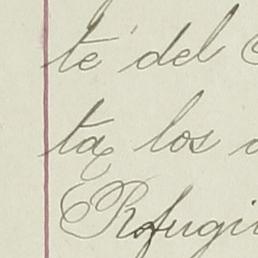 te del
ta los
Refugi